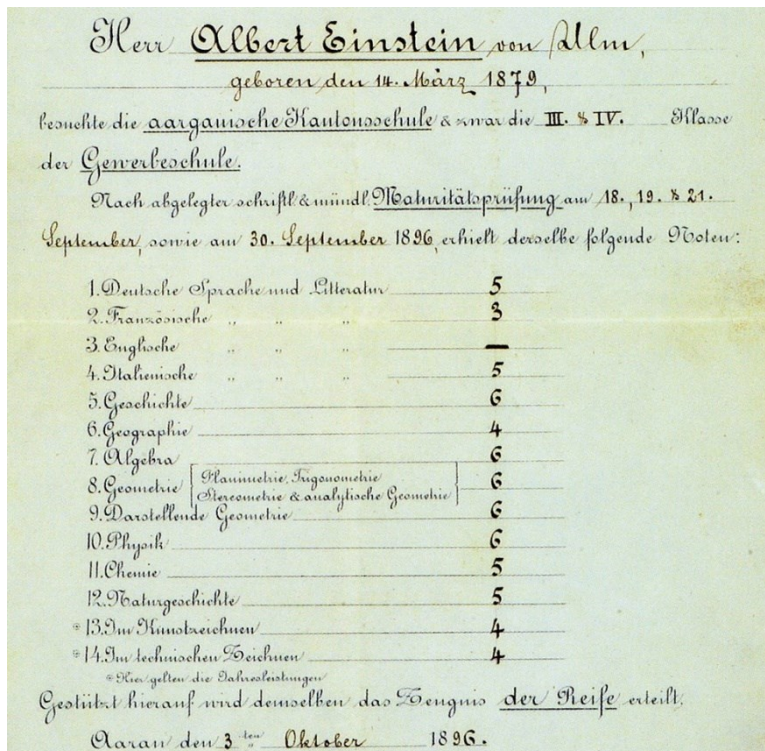 Herr Albert Einstein von Ulm,
geboren den 14. März 1879,
besuchte die aargauische Kantonsschule & zwar die III. & IV. Klasse
der Gewerbeschule.
Nach abgelegter schriftl. & mündl. Maturitätsprüfung am 18., 19. & 21.
September, sowie am 30. September 1896, erhielt derselbe folgende Noten:
1. Deutsche Sprache und Litteratur 5
2. Französische " " " 3
3. Englische " " " —
4. Italienische " " " 5
5. Geschichte 6
6. Geographie 4
7. Algebra 6
8. Geometrie [Planimetrie, Trigonometrie
Stereometrie & analytische Geometrie] 6
9. Darstellende Geometrie 6
10. Physik 6
11. Chemie 5
12. Naturgeschichte 5
* 13. Im Kunstzeichnen 4
* 14. Im technischen Zeichnen 4
* Hier gelten die Jahresleistungen
Gestützt hierauf wird demselben das Zeugnis der Reife erteilt.
Aarau den 3ten Oktober 1896.